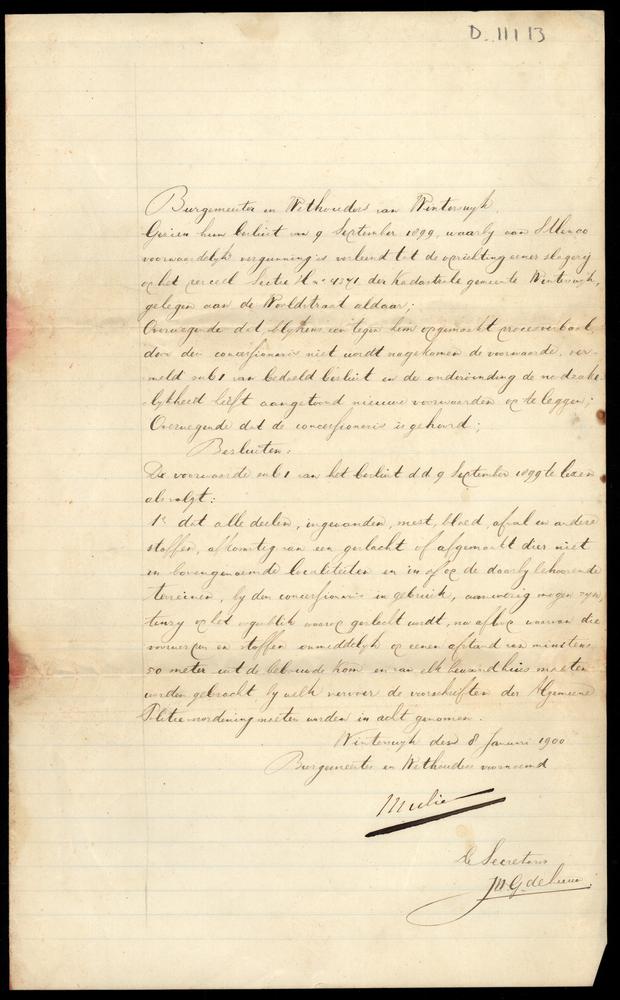 D. III 13
Burgemeester en Wethouders van Winterswijk
Gezien hun besluit van 9 September 1899, waarbij aan
voorwaardelijk vergunning is verleend tot de oprichting eener slagerij
op het perceel Sectie H no 4371 der Kadastrale gemeente Winterswijk,
gelegen aan de Wooldstraat aldaar;
Overwegende dat blijkens een tegen hem opgemaakt procesverbaal,
door den concessionaris niet wordt nagekomen de voorwaarde, ver-
meld sub 1 van bedoeld besluit en de ondervinding de noodzake
lijkheid heeft aangetoond nieuwe voorwaarden op te leggen;
Overwegende dat de concessionaris is gehoord;
Besluiten:
De voorwaarde sub 1 van het besluit d.d. 9 September 1899 te lezen
als volgt:
1o dat alle deelen, ingewanden, mest, bloed, afval en andere
stoffen, afkomstig van een geslacht of afgemaakt dier niet
in bovengenoemde localiteiten en in of op de daarbij behoorende
terreinen, bij den concessionaris in gebruik, aanwezig mogen zijn
tenzij op het oogenblik waarop geslacht wordt, na afloop waarvan die
voorwerpen en stoffen onmiddelijk op eenen afstand van minstens
50 meter uit de bebouwde kom en van elk bewoond huis moeten
worden gebracht bij welk vervoer de voorschriften der Algemeene
Politieverordening moeten worden in acht genomen.
Winterswijk den 8 Januari 1900
Burgemeester en Wethouders voornoemd
de Secretaris